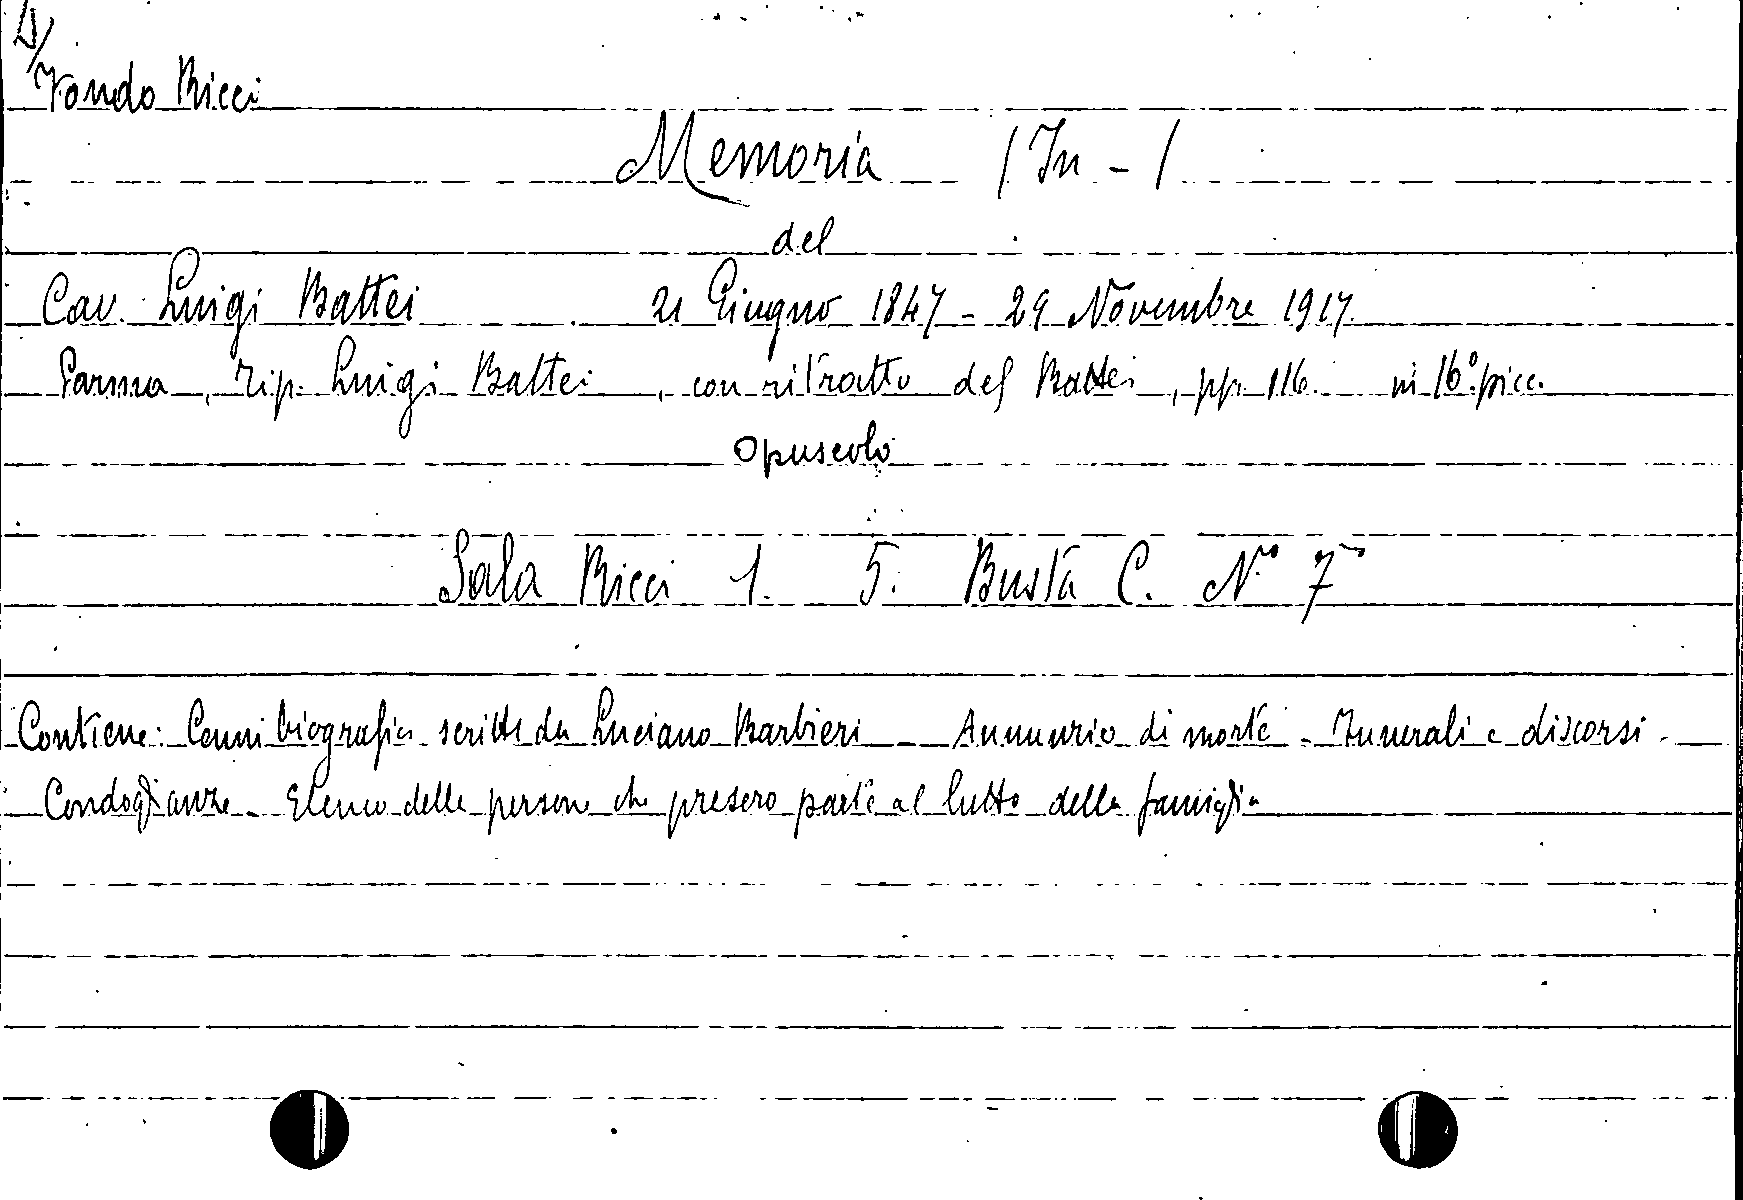 Fondo Ricci
Memoria (In - )
del
Cav. Luigi Battei 21 Giugno 1847 - 29 Novembre 1917.
Parma, Tip. Luigi Battei, con ritratto del Battei, pp. 116. in 16° picc.
Opuscolo
Sala Ricci 1. 5. Busta C. N° 7
Contiene: Cenni biografici scritti da Luciano Barbieri - Annunzio di morte - Funerali e discorsi -
Condoglianze - Elenco delle persone che presero parte al lutto della famiglia